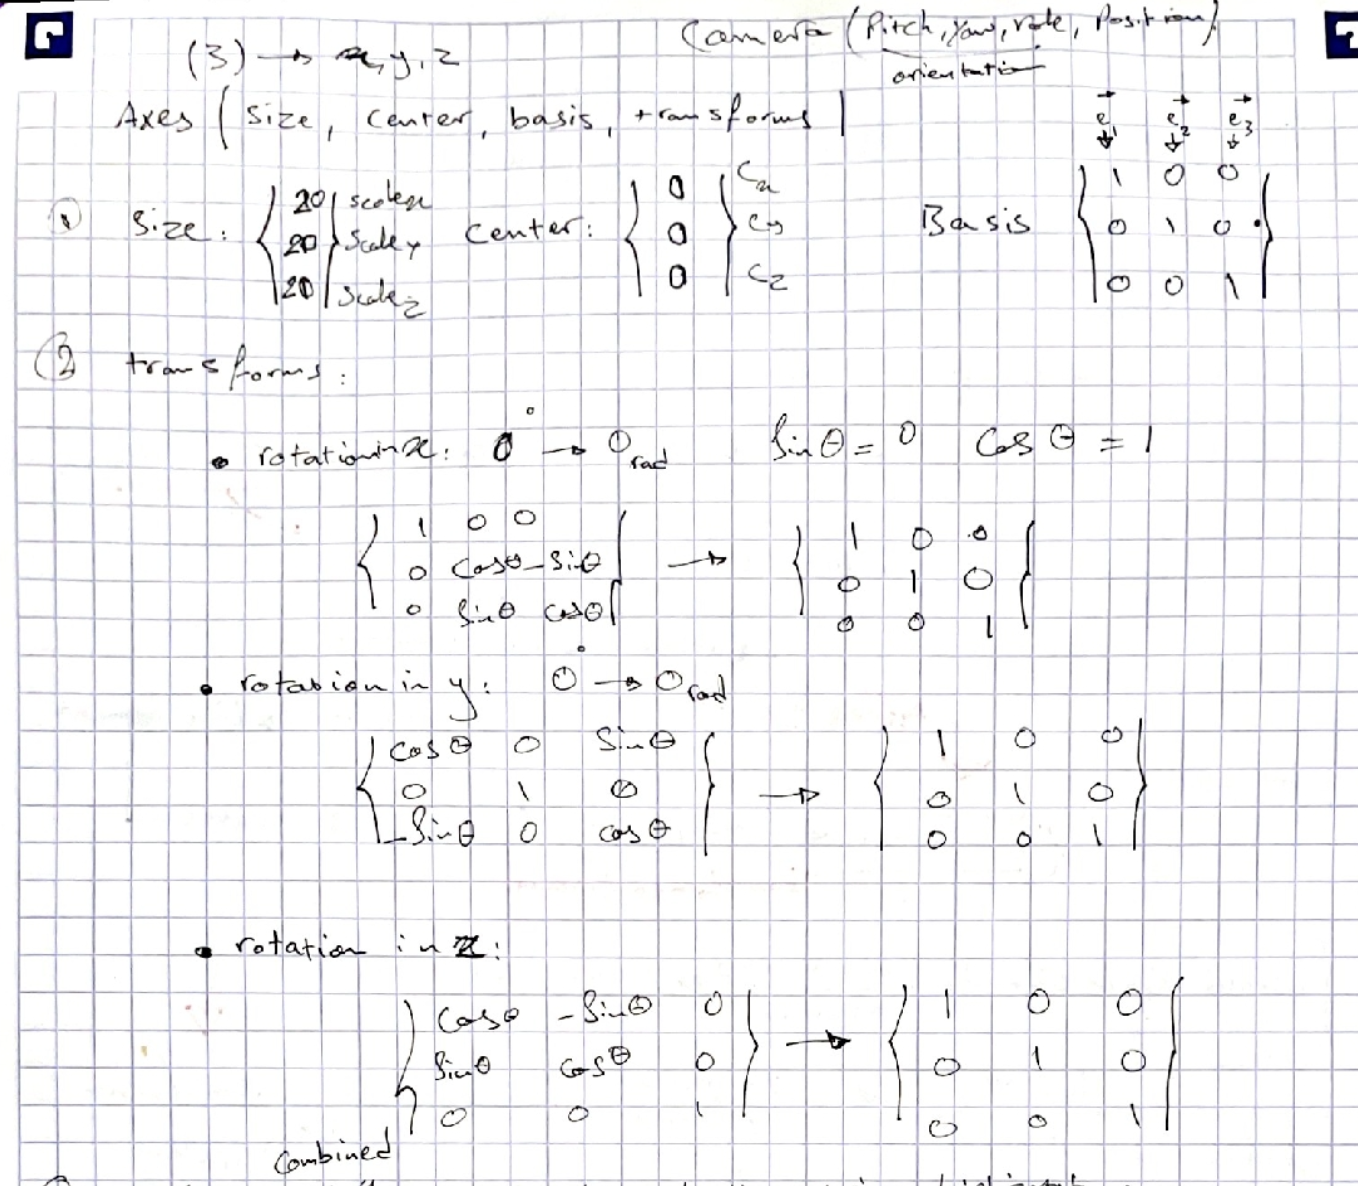 Camera (Pitch, yaw, role, Position)
orientation
(3) → x, y, z
Axes ( Size, center, basis, transforms )
e⃗1 e⃗2 e⃗3
① Size: { 20 20 20 } scalex scaley scalez center: { 0 0 0 } Cx Cy Cz Basis
{ 1 0 0
0 1 0
0 0 1 }
② transforms:
• rotation in x: 0° → 0 rad Sin θ = 0 Cos θ = 1
{ 1 0 0 → { 1 0 0
0 cosθ -Sinθ 0 1 0
0 Sinθ cosθ } 0 0 1 }
• rotation in y: 0° → 0 rad
{ cosθ 0 Sinθ → { 1 0 0
0 1 0 0 1 0
-Sinθ 0 cosθ } 0 0 1 }
• rotation in z:
{ Cosθ -Sinθ 0 → { 1 0 0
Sinθ cosθ 0 0 1 0
0 0 1 } 0 0 1 }
Combined